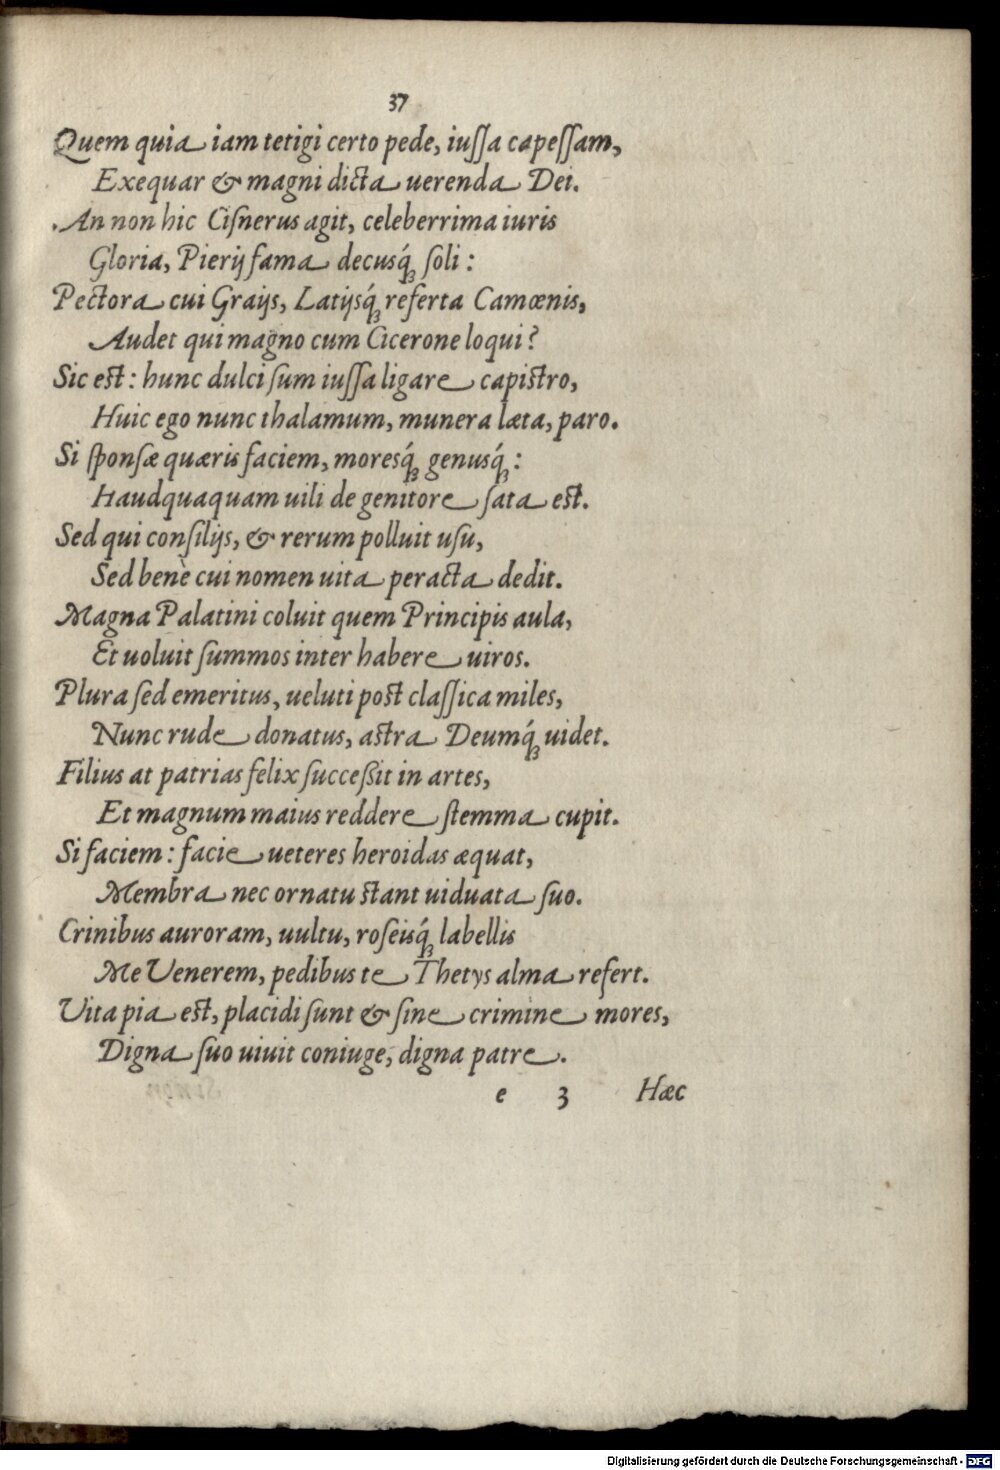 37
Quem quia iam tetigi certo pede, iuſſa capeſſam,
Exequar & magni dicta uerenda Dei.
An non hic Ciſnerus agit, celeberrima iuris
Gloria, Pierij fama decusq́ꝫ ſoli:
Pectora cui Graijs, Latijsq́ꝫ referta Camœnis,
Audet qui magno cum Cicerone loqui?
Sic est: hunc dulci ſum iuſſa ligare capistro,
Huic ego nunc thalamum, munera læta, paro.
Si ſponſæ quæris faciem, moresq́ꝫ genusq́ꝫ:
Haudquaquam uili de genitore ſata est.
Sed qui conſilijs, & rerum polluit uſu,
Sed benè cui nomen uita peracta dedit.
Magna Palatini coluit quem Principis aula,
Et uoluit ſummos inter habere uiros.
Plura ſed emeritus, ueluti post claſſica miles,
Nunc rude donatus, astra Deumq́ꝫ uidet.
Filius at patrias felix ſucceſsit in artes,
Et magnum maius reddere ſtemma cupit.
Si faciem: facie ueteres heroidas æquat,
Membra nec ornatu stant uiduata ſuo.
Crinibus auroram, uultu, roſeisq́ꝫ labellis
Me Uenerem, pedibus te Thetys alma refert.
Uita pia est, placidi ſunt & ſine crimine mores,
Digna ſuo uiuit coniuge, digna patre.
e 3 Hæc
Digitalisierung gefördert durch die Deutsche Forschungsgemeinschaft - DFG